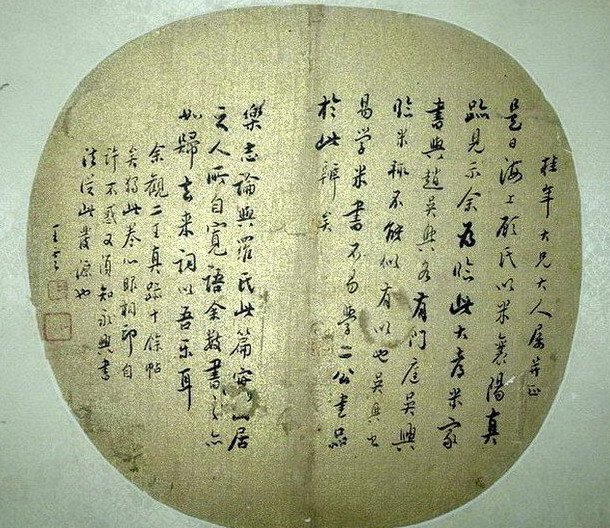 桂年大兄大人屬并正
是日海上顧氏以米襄陽真
跡見示余為臨此大都米家
書與趙吳興各有門庭吳興
臨米輒不能似有以也吳興書
易學米書不易學二公書品
於此辨矣
樂志論與羅氏此篇實山居
之人所自寬語余數書之亦
如歸去來詞以吾樂耳
余觀二王真跡十餘帖
矣獨此卷心眼相印自
許不惑又須知永興書
法從此發源也
王